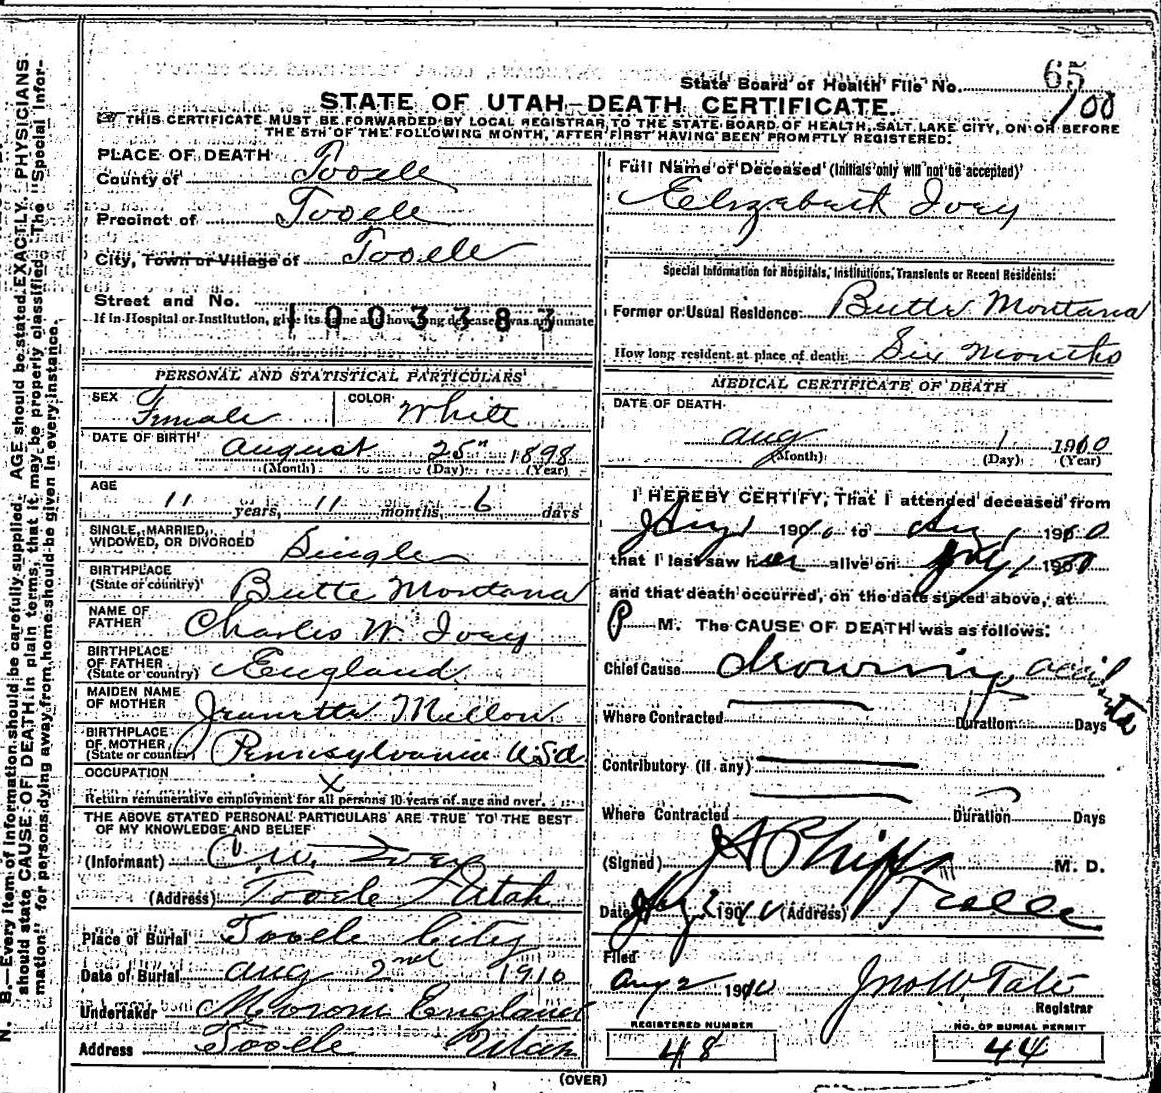 State Board of Health File No. 65
100
STATE OF UTAH—DEATH CERTIFICATE.
THIS CERTIFICATE MUST BE FORWARDED BY LOCAL REGISTRAR TO THE STATE BOARD OF HEALTH, SALT LAKE CITY, ON OR BEFORE
THE 5TH OF THE FOLLOWING MONTH, AFTER FIRST HAVING BEEN PROMPTLY REGISTERED.
PLACE OF DEATH
County of Tooele
Precinct of Tooele
City, Town or Village of Tooele
Street and No.
If in Hospital or Institution, give its name and how long deceased was an inmate
1003383
PERSONAL AND STATISTICAL PARTICULARS
SEX Female COLOR White
DATE OF BIRTH August 25" 1898
(Month) (Day) (Year)
AGE 11 years, 11 months, 6 days
SINGLE, MARRIED,
WIDOWED, OR DIVORCED Single
BIRTHPLACE
(State or country) Butte Montana
NAME OF
FATHER Charles W. Ivey
BIRTHPLACE
OF FATHER
(State or country) England
MAIDEN NAME
OF MOTHER Jeanette Mellow
BIRTHPLACE
OF MOTHER
(State or country) Pennsylvania U.S.A.
OCCUPATION X
Return remunerative employment for all persons 10 years of age and over.
THE ABOVE STATED PERSONAL PARTICULARS ARE TRUE TO THE BEST
OF MY KNOWLEDGE AND BELIEF
(Informant) C. W. Ivey
(Address) Tooele Utah
Place of Burial Tooele City
Date of Burial Aug 2nd 1910
Undertaker Moroni England
Address Tooele Utah
Full Name of Deceased (Initials only will not be accepted)
Elizabeth Ivey
Special Information for Hospitals, Institutions, Transients or Recent Residents:
Former or Usual Residence: Butte Montana
How long resident at place of death: Six Months
MEDICAL CERTIFICATE OF DEATH
DATE OF DEATH
Aug 1 1910
(Month) (Day) (Year)
I HEREBY CERTIFY, That I attended deceased from
Aug 1 1910 to Aug 1 1910
that I last saw her alive on 1910
and that death occurred, on the date stated above, at
P M. The CAUSE OF DEATH was as follows:
Chief Cause drowning accidental
Where Contracted Duration Days
Contributory (if any)
Where Contracted Duration Days
(Signed) J A Phipps M. D.
Date Aug 2 1910 (Address) Tooele
Filed
Aug 2 1910 Jno W Tate
Registrar
REGISTERED NUMBER
48
NO. OF BURIAL PERMIT
44
(OVER)
N. B.—Every item of information should be carefully supplied. AGE should be stated EXACTLY. PHYSICIANS
should state CAUSE OF DEATH in plain terms, that it may be properly classified. The "Special Infor-
mation" for persons dying away from home should be given in every instance.